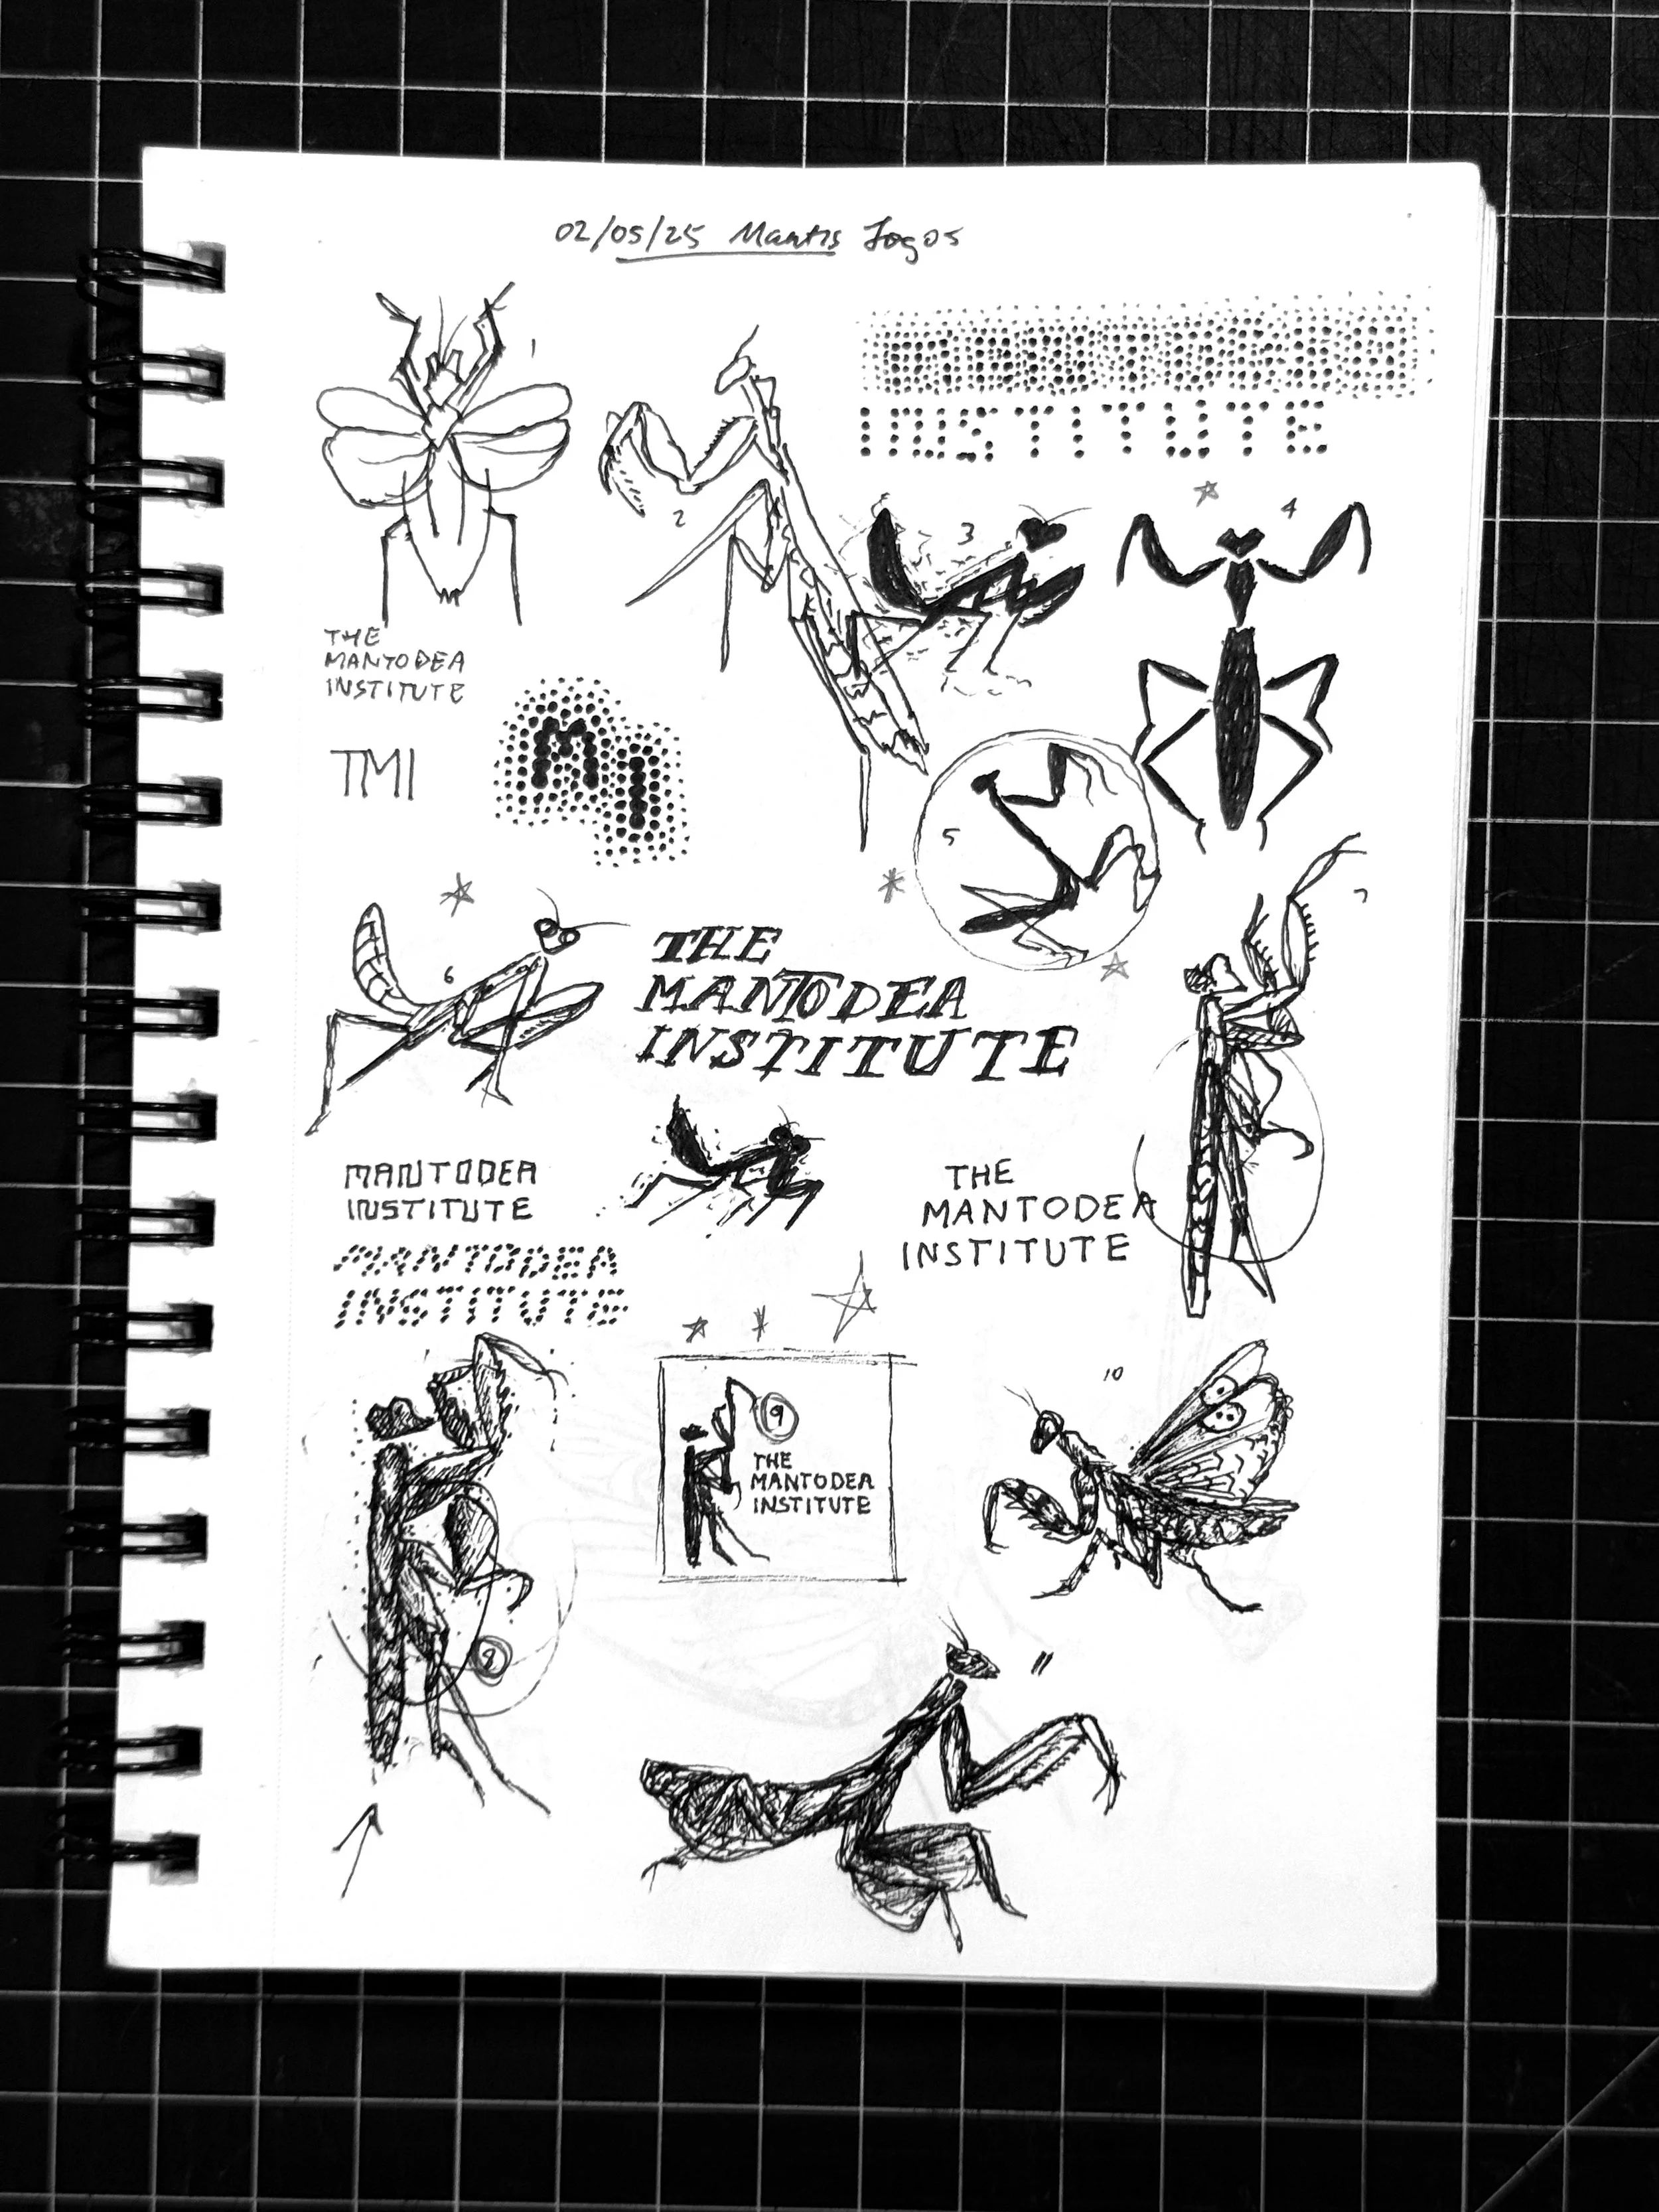 02/05/25 Mantis Logos
1
INSTITUTE
2
3
4
THE
MANTODEA
INSTITUTE
TMI
MI
5
6
7
THE
MANTODEA
INSTITUTE
MANTODEA
INSTITUTE
THE
MANTODEA
INSTITUTE
MANTODEA
INSTITUTE
9
THE
MANTODEA
INSTITUTE
10
9
11